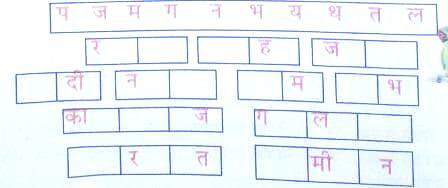 प ज म ग न भ य थ त ल
र ह ज
दी न म भ
का ज ग ल
र त मी न